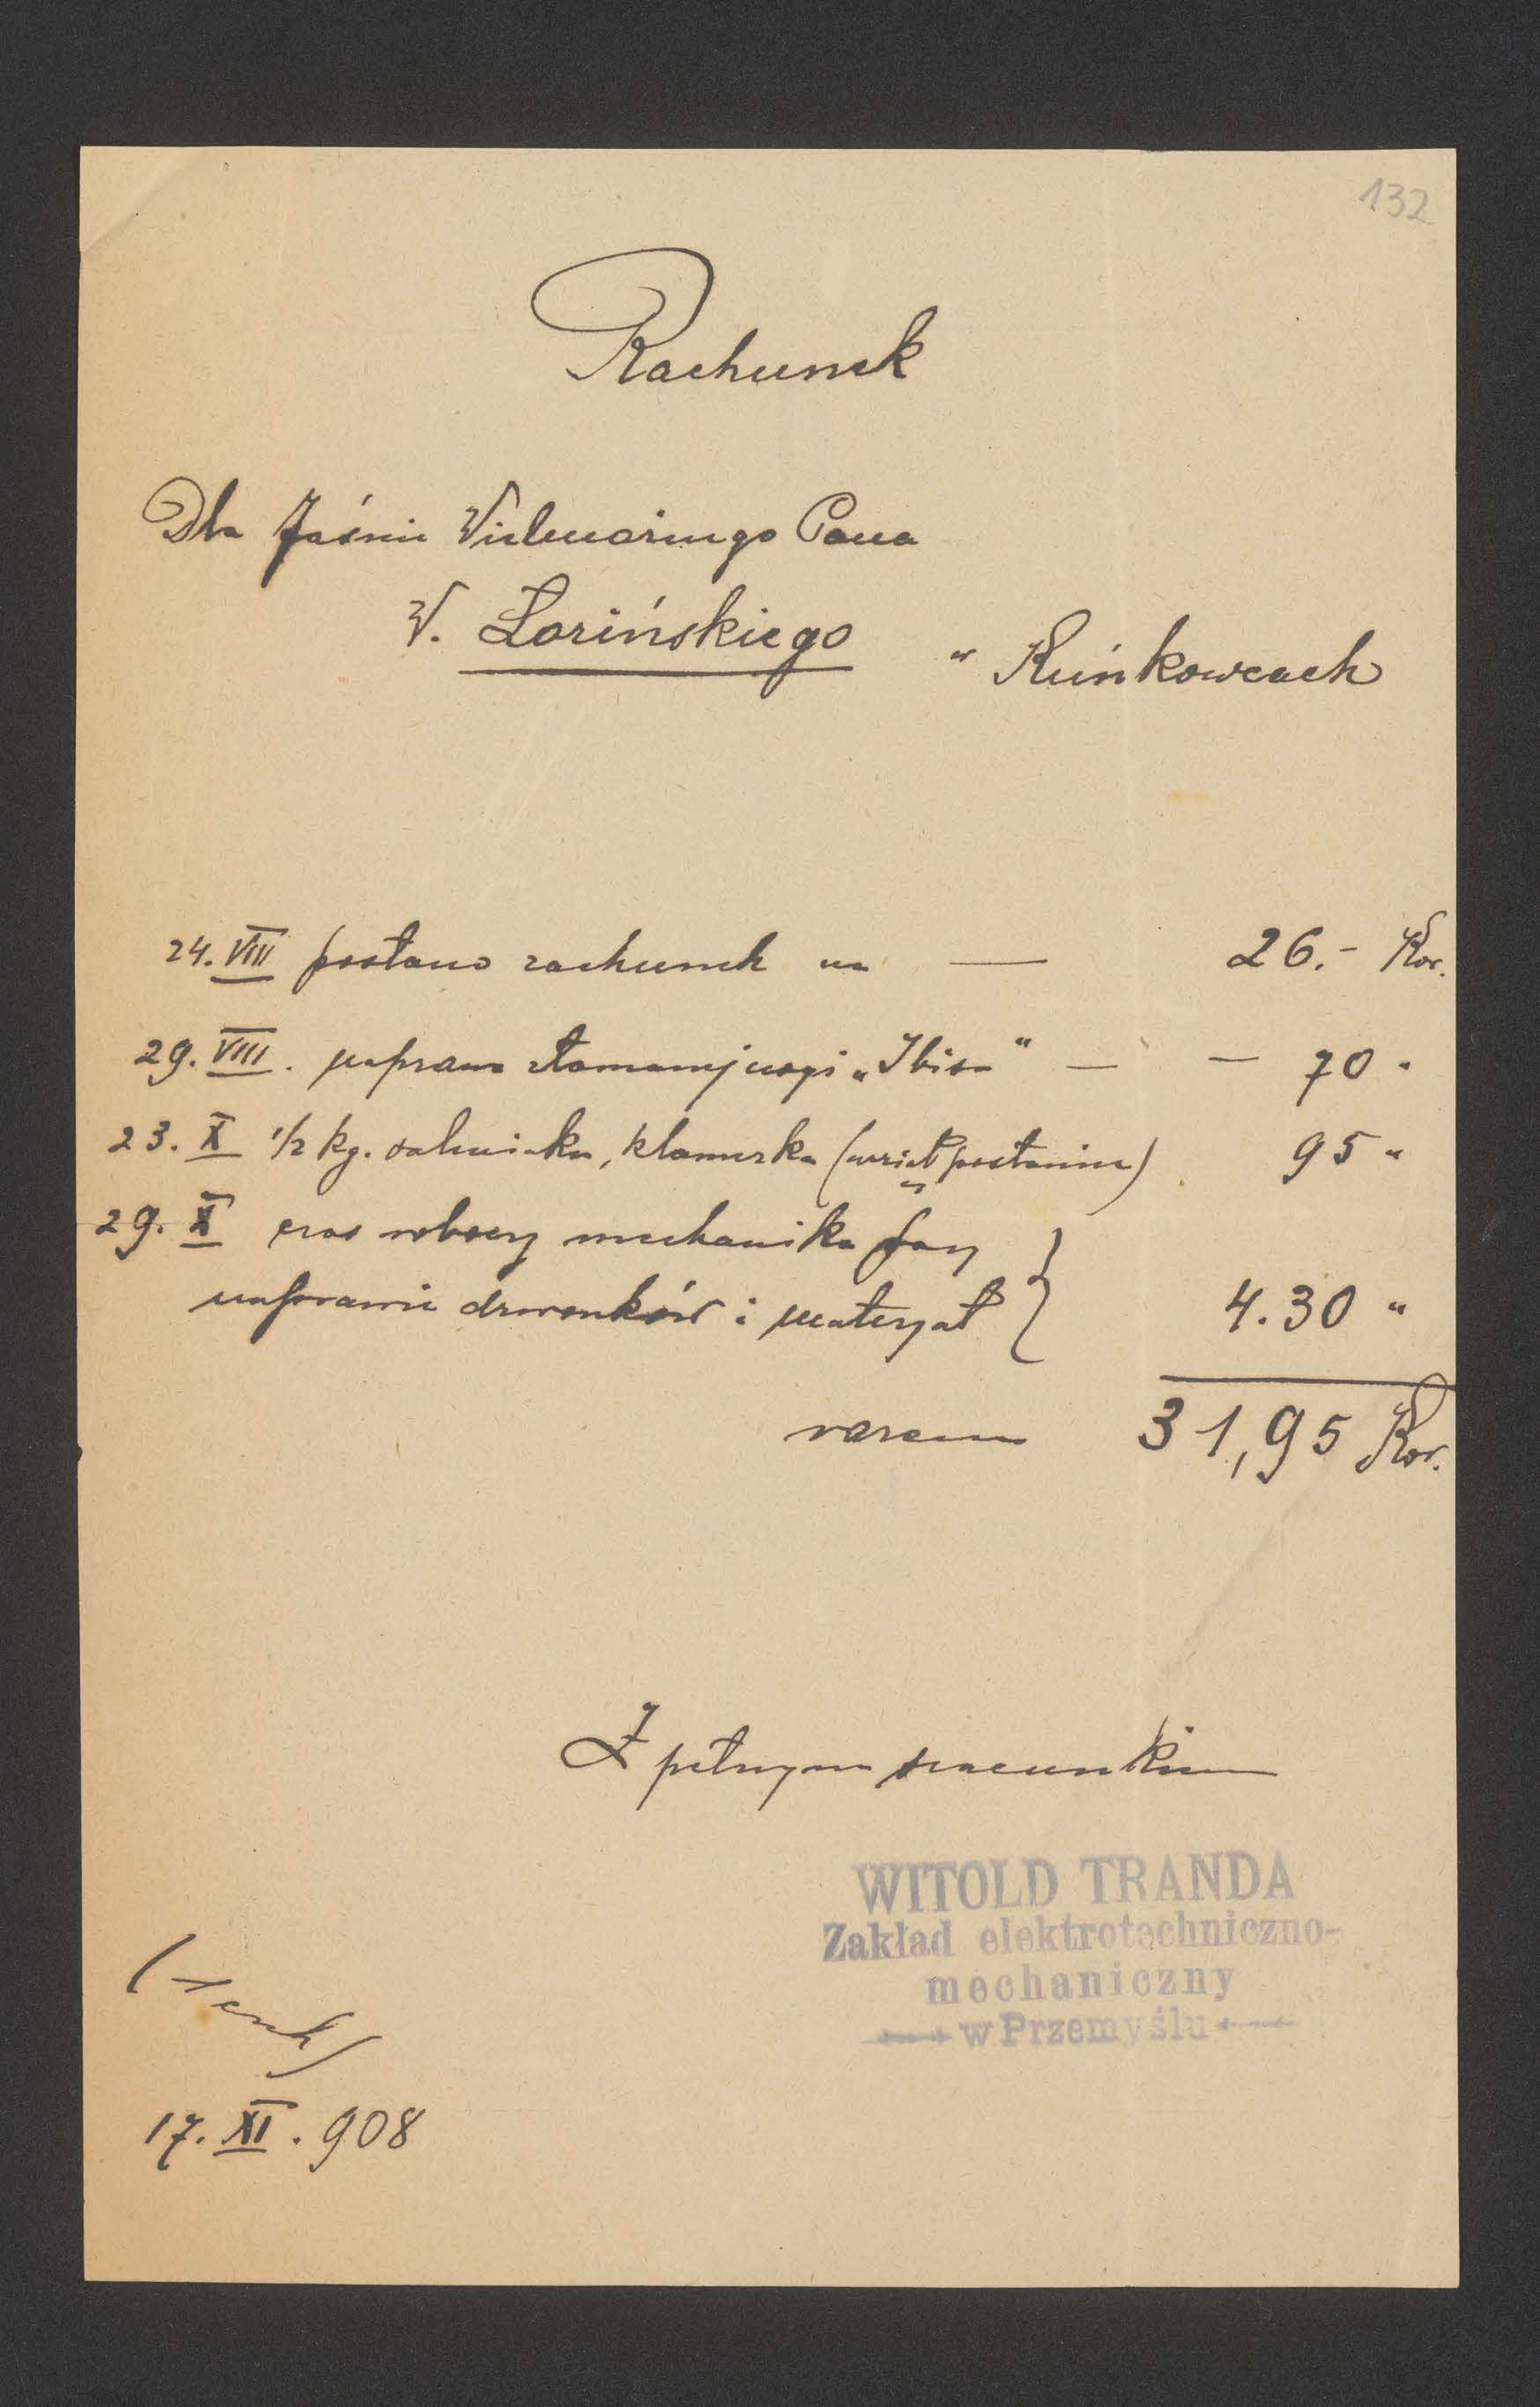 132
Rachunek
Dla Jaśnie Wielmożnego Pana
W. Łozińskiego w Ruńkowcach
24. VIII posłano rachunek na — 26.– Kor.
29. VIII. naprawa złamanej nogi „Ibisa" — — 70 "
23. X 1/2 kg. salmiaku, klamerka (wziął posłaniec) 95 "
29. X czas roboczy mechanika przy
naprawie dzwonków i materyał } 4.30 "
razem 31,95 Kor.
Z pełnym szacunkiem
WITOLD TRANDA
Zakład elektrotechniczno-
mechaniczny
w Przemyślu
17. XI. 908